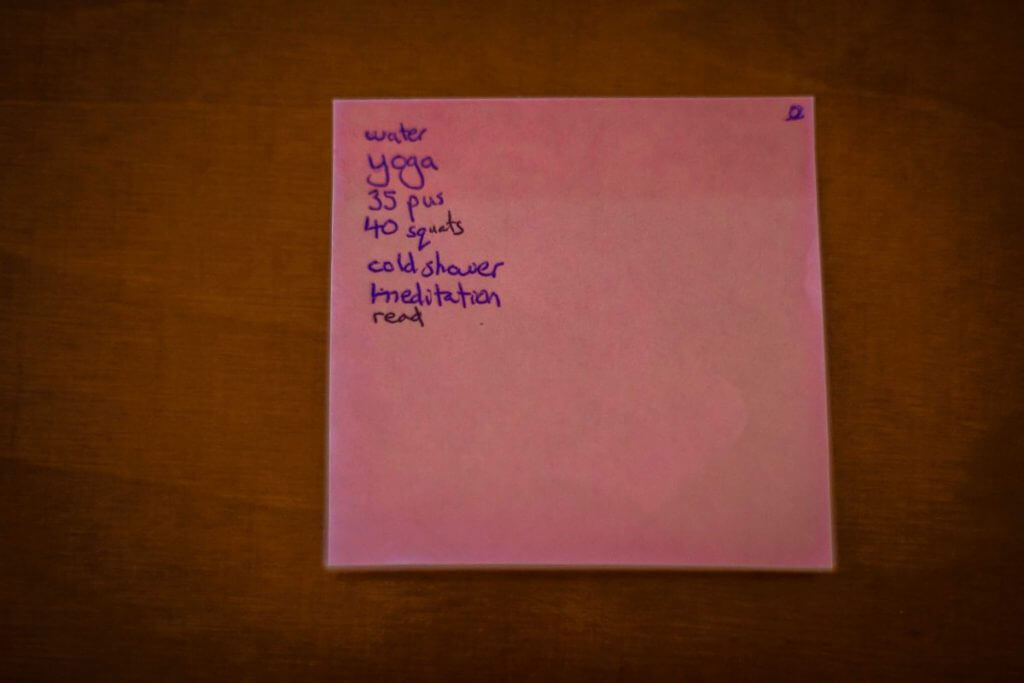 water
yoga
35 pus
40 squats
cold shower
meditation
read